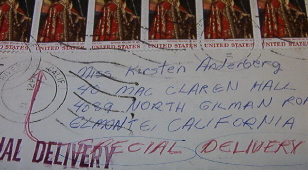 UNITED STATES UNITED STATES UNITED STATES UNITED STATES UNITED STATES
Miss Kirsten Anderberg
40 MAC CLAREN HALL
4024 NORTH GILMAN RD
ELMONTE, CALIFORNIA
IAL DELIVERY SPECIAL DELIVERY